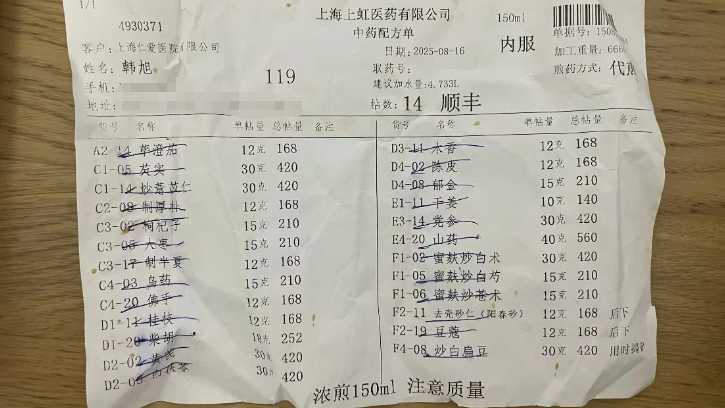 1/1
4930371
上海上虹医药有限公司
150ml
中药配方单
内服
客户: 上海仁爱医院有限公司
日期: 2025-08-16
姓名: 韩旭
119
取药号:
煎药方式: 代煎
手机:
建议加水量: 4.733L
地址:
帖数: 14 顺丰
货号 名称 单帖量 总帖量 备注
A2-14 荜澄茄 12克 168
C1-05 芡实 30克 420
C1-14 炒薏苡仁 30克 420
C2-08 制厚朴 12克 168
C3-02 枸杞子 15克 210
C3-06 大枣 15克 210
C3-17 制半夏 12克 168
C4-03 乌药 15克 210
C4-20 佛手 12克 168
D1-11 桂枝 12克 168
D1-20 柴胡 18克 252
D2-02 黄芪 30克 420
D2-05 茯苓 30克 420
货号 名称 单帖量 总帖量 备注
D3-11 木香 12克 168
D4-02 陈皮 12克 168
D4-08 郁金 15克 210
E1-11 干姜 10克 140
E3-14 党参 30克 420
E4-20 山药 40克 560
F1-02 蜜麸炒白术 30克 420
F1-05 蜜麸炒白芍 15克 210
F1-06 蜜麸炒苍术 15克 210
F2-11 去壳砂仁(阳春砂) 12克 168 后下
F2-19 豆蔻 12克 168 后下
F4-08 炒白扁豆 30克 420 用时捣碎
浓煎150ml 注意质量